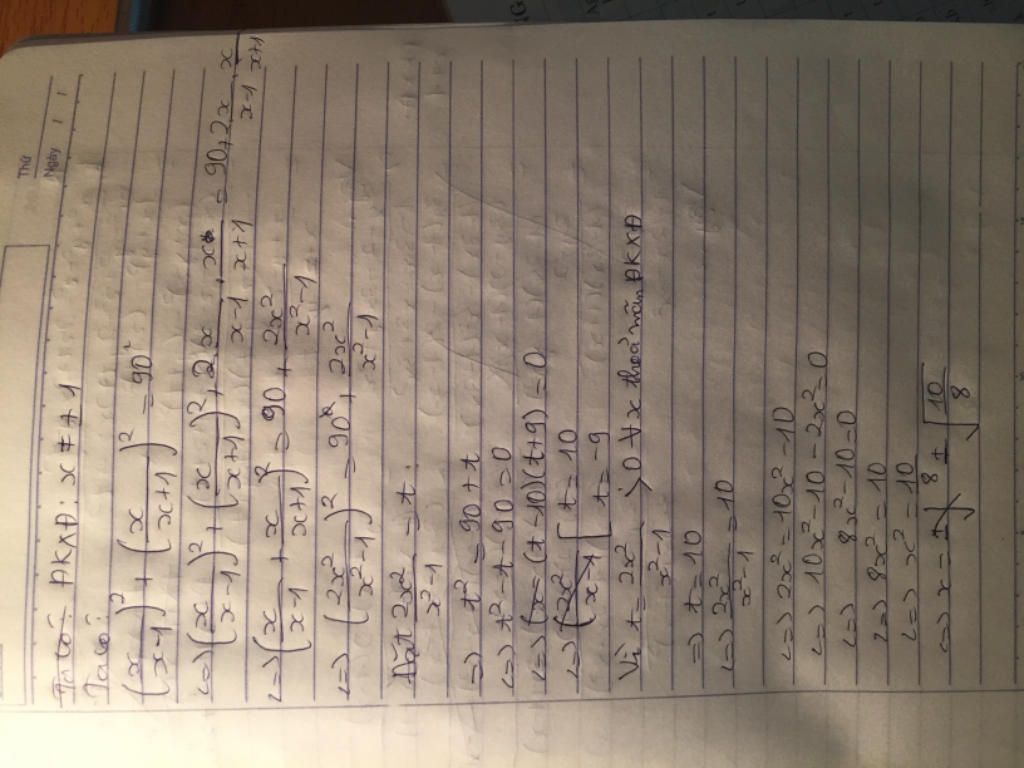 Thứ
Ngày
Ta có: ĐKXĐ: x ≠ ± 1
Ta có:
(x/(x-1))² + (x/(x+1))² = 90
<=> (x/(x-1))² + (x/(x+1))² + 2 x/(x-1) . x/(x+1) = 90 + 2 x/(x-1) . x/(x+1)
<=> (x/(x-1) + x/(x+1))² = 90 + 2x²/(x²-1)
<=> (2x²/(x²-1))² = 90 + 2x²/(x²-1)
Đặt 2x²/(x²-1) = t.
=> t² = 90 + t
<=> t² - t - 90 = 0
<=> (t-10)(t+9) = 0
<=> [ t = 10
t = -9
Vì t = 2x²/(x²-1) > 0 ∀ x thoả mãn ĐKXĐ
=> t = 10
<=> 2x²/(x²-1) = 10
<=> 2x² = 10x² - 10
<=> 10x² - 10 - 2x² = 0
<=> 8x² - 10 = 0
<=> 8x² = 10
<=> x² = 10/8
<=> x = ± √(10/8)